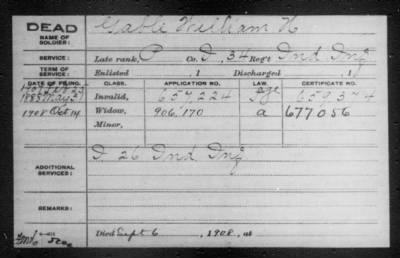 DEAD
NAME OF SOLDIER:
Gable William H
SERVICE:
Late rank, P Co. D, 34 Reg't Ind Inf
TERM OF SERVICE:
Enlisted , 1 Discharged , 1
DATE OF FILING. CLASS. APPLICATION NO. LAW. CERTIFICATE NO.
Invalid, 657,224 659,374
1908 Oct 14 Widow, 906,170 a 677056
Minor,
ADDITIONAL SERVICES:
D. 26 Ind Inf
REMARKS:
Died Sept 6 , 1908, at